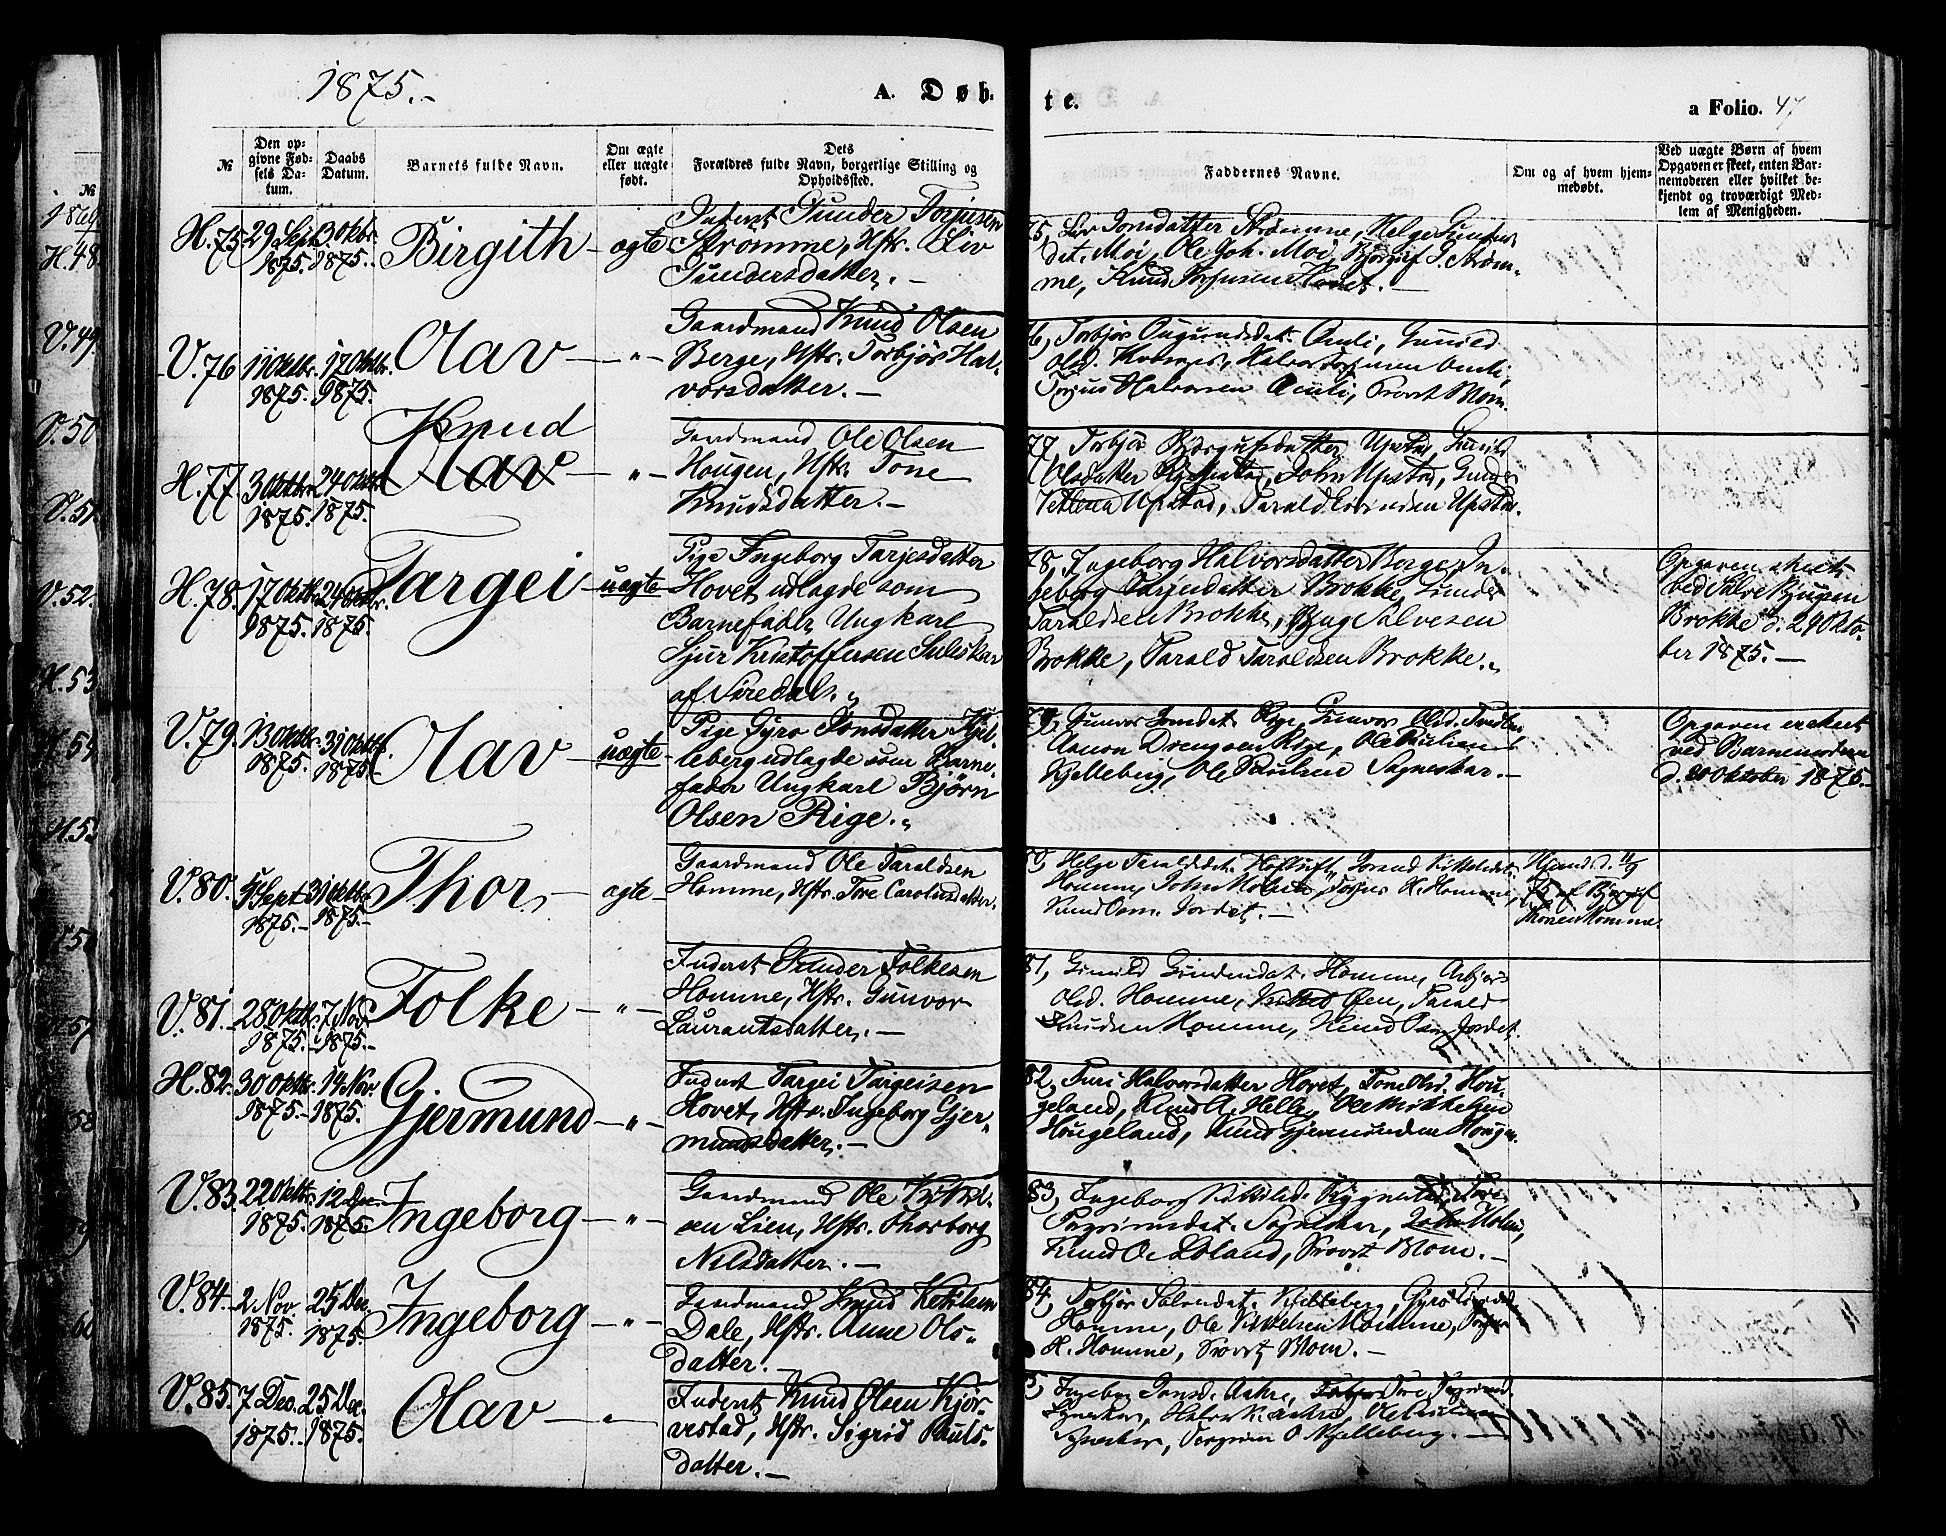 1875.-
A. Døb-
te.
a Folio. 47
№
Den op-
givne Fød-
sels Da-
tum.
Daabs
Datum.
Barnets fulde Navn.
Om ægte
eller uægte
født.
Dets
Forældres fulde Navn, borgerlige Stilling og
Opholdssted.
Faddernes Navne.
Om og af hvem hjem-
medøbt.
Ved uægte Børn af hvem
Opgaven er skeet, enten Bar-
nemoderen eller hvilket be-
kjendt og troværdigt Med-
lem af Menigheden.
H.75 29 Sept. 3 Oktbr.
1875. 1875.
Birgith - ægte
Inderst Gunder Torjusen
Strømme, Hstr. Liv
Gundersdatter. -
75, Liv Jonsdatter Strømme, Helge Gunders
dat. Moi, Ole Joh. Moi, Bjørgulf G. Strøm-
me, Knud Torjusen
V.76 11 Oktbr. 17 Oktbr.
1875. 1875.
Olav - " -
Gaardmand Knud Olsen
Berge, Hstr. Torbjør Hal-
vorsdatter. -
Torbjør Ougundsdat. Omli, Gunild
Olsd. Halvor Omli,
Torjus Halvorsen Omli, Provst Blom.
H.77 3 Oktbr. 24 Oktbr.
1875. 1875.
Knud
Olav - " -
Gaardmand Ole Olsen
Hougen, Hstr. Tone
Knudsdatter. -
77, Torbjør Bjørgulfsdatter Upstad, Gunild
Olsdatter Rygnestad, John Upstad, Gunder
Upstad, Tarald Eivindsen Upstad.
H.78. 17 Oktbr. 24 Oktbr.
1875. 1875.
Targei - uægte
Pige Ingeborg Tarjesdatter
Hovet udlagde som
Barnefader Ungkarl
Sjur Kristoffersen Suleskar
af Siredal. "
78, Ingeborg Halvorsdatter Berge, In-
geborg Tarjeidatter Brokke, Gunder
Taraldsen Brokke, Salvesen
Brokke, Tarald Taraldsen Brokke. "
Opgaven skeet
ved Salve
Brokke d. 24 Okto-
ber 1875. -
V.79. 13 Oktbr. 31 Oktbr.
1875. 1875.
Olav - uægte
Pige Gyro Jonsdatter Kjel-
leberg udlagde som Barne-
fader Ungkarl Bjørn
Olsen Rige. "
79, Gunvor Jonsdat. Rige, Gunvor Olsd.
Aanon Drengsen Rige, Ole Paulsen
Kjelleberg, Ole Paulsen Sagneskar. -
Opgaven er skeet
ved Barnemoderen
d. Oktober 1875. -
V.80. 5 Sept. 31 Oktbr.
1875. - 1875. -
Thor - ægte -
Gaardmand Ole Taraldsen
Homme, Hstr. Tore Carolusdatter.
Helge Taraldsdat. Jorand Kittelsdat.
Homme, John Torjus K. Homme,
Knud Osm. Jordet. -
Hjemd. d.
75 af Bjørgulf
Homme.
V.81. 28 Oktbr. 7 Nov.
1875. - 1875. -
Folke - " -
Inderst Gunder Folkesen
Homme, Hstr. Gunvor
Laurantsdatter. -
81, Gunild Gundersdat. Homme, Asbjør
Olsd. Homme, Øen, Tarald
Knudsen Homme, Knud Osm. Jordet.
H.82. 30 Oktbr. 14 Nov.
1875. - 1875.
Gjermund - " -
Inderst Targei Targeisen
Hovet, Hstr. Ingeborg Gjer-
mundsdatter. -
82, Turi Halvorsdatter Hovet, Tone Olsd. Hou-
geland, Knud A. Helle, Ole Mikkelsen
Hougeland, Knud Gjermundsen
V.83. 22 Oktbr. 12 Dec.
1875. 1875.
Ingeborg - " -
Gaardmand Ole Kittel-
sen Lien, Hstr. Thorborg
Nilsdatter. -
83, Ingeborg Kittilsd. Rygnestad, Tore
Torgrimsdat. Sagneskar, John
Knud O. Provst Blom. -
V.84. 2 Nov. 25 Dec.
1875. 1875.
Ingeborg - " -
Gaardmand Knud Ketilsen
Dale, Hstr. Anne Ols-
datter. -
84, Torbjør Salvesdat. Kjelleberg, Gyro
Homme, Ole Kittelsen Homme, Torjus
K. Homme, Provst Blom. -
V.85. 7 Dec. 25 Dec.
1875. - 1875.
Olav - " -
Inderst Knud Olsen Kjør-
vestad, Hstr. Sigrid Pauls-
datter. -
Ingeborg Jonsd. Aakre, Tore Torgrimsd.
Sagneskar, Halvor K. Aakre, Ole Paulsen
Sagneskar, Torgrim O. Kjelleberg. -
№
H.48.
V.49.
V.50
V.51.
V.52.
H.53
H.54